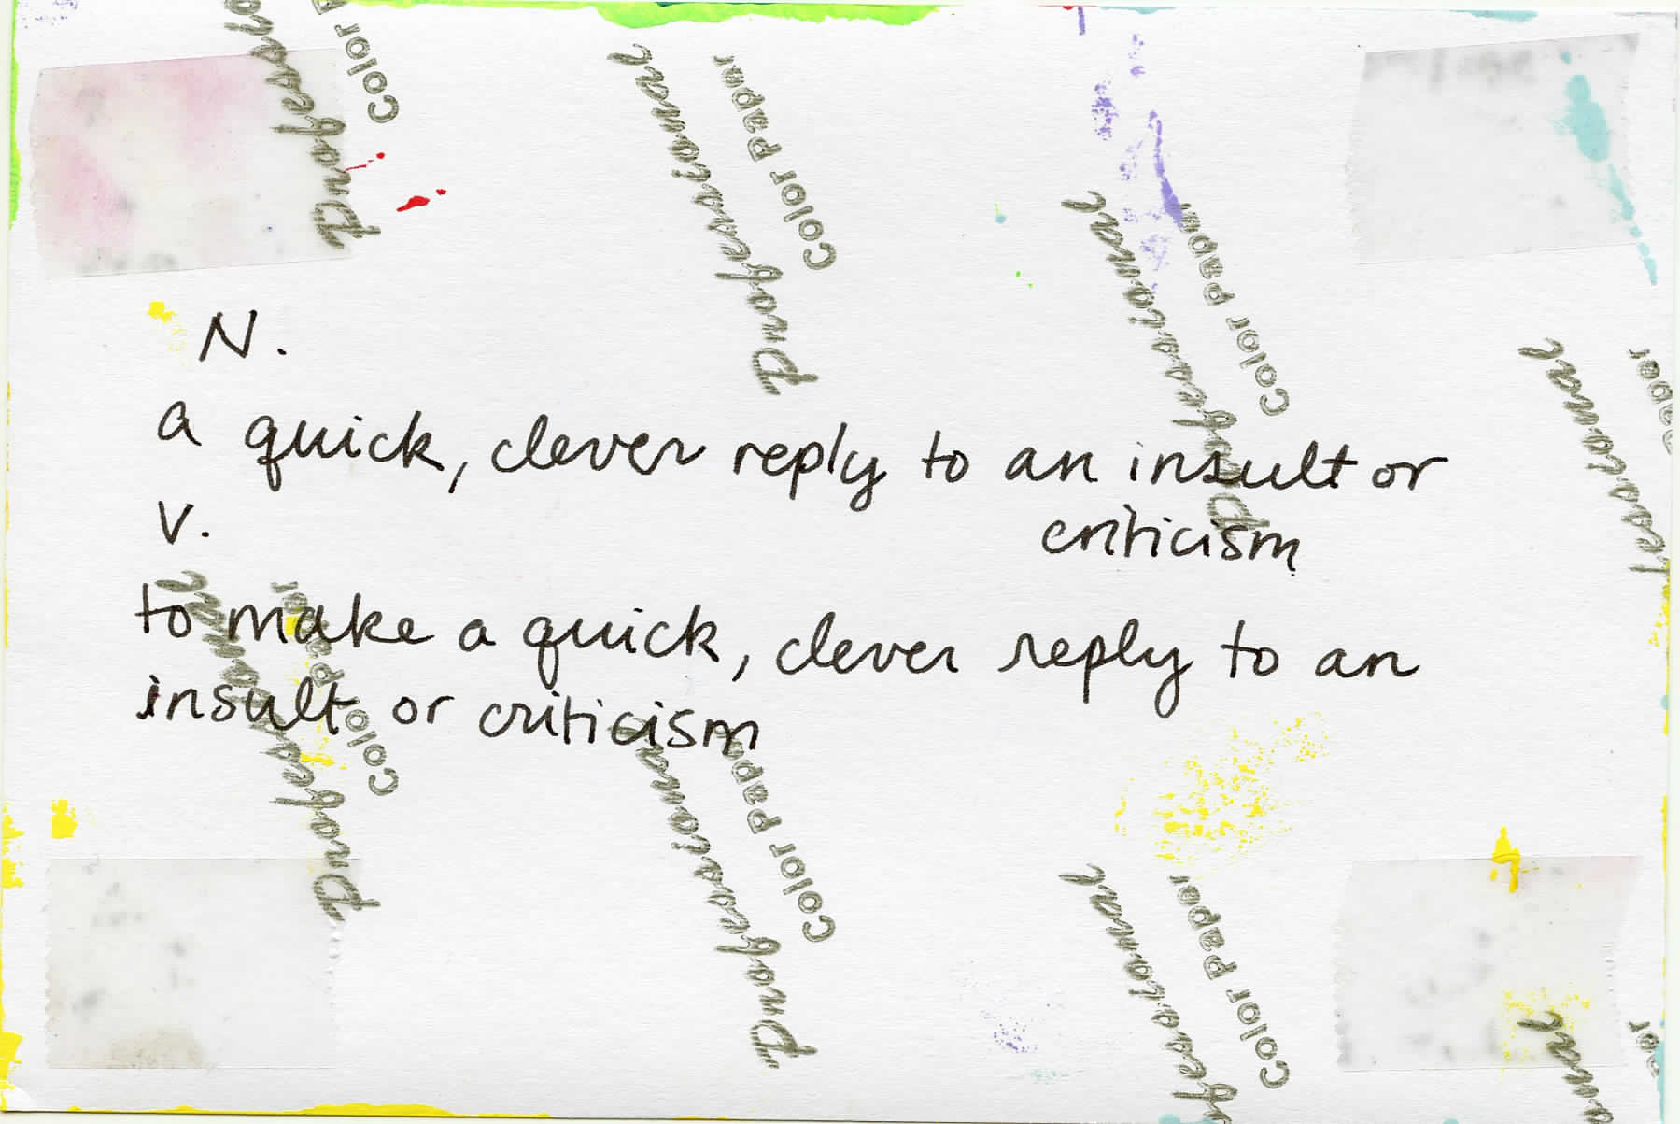 N.
a quick, clever reply to an insult or
criticism
V.
to make a quick, clever reply to an
insult or criticism
Professional
Color Paper
Professional
Color Paper
Professional
Color Paper
Professional
Color Paper
Professional
Color Paper
Professional
Color Paper